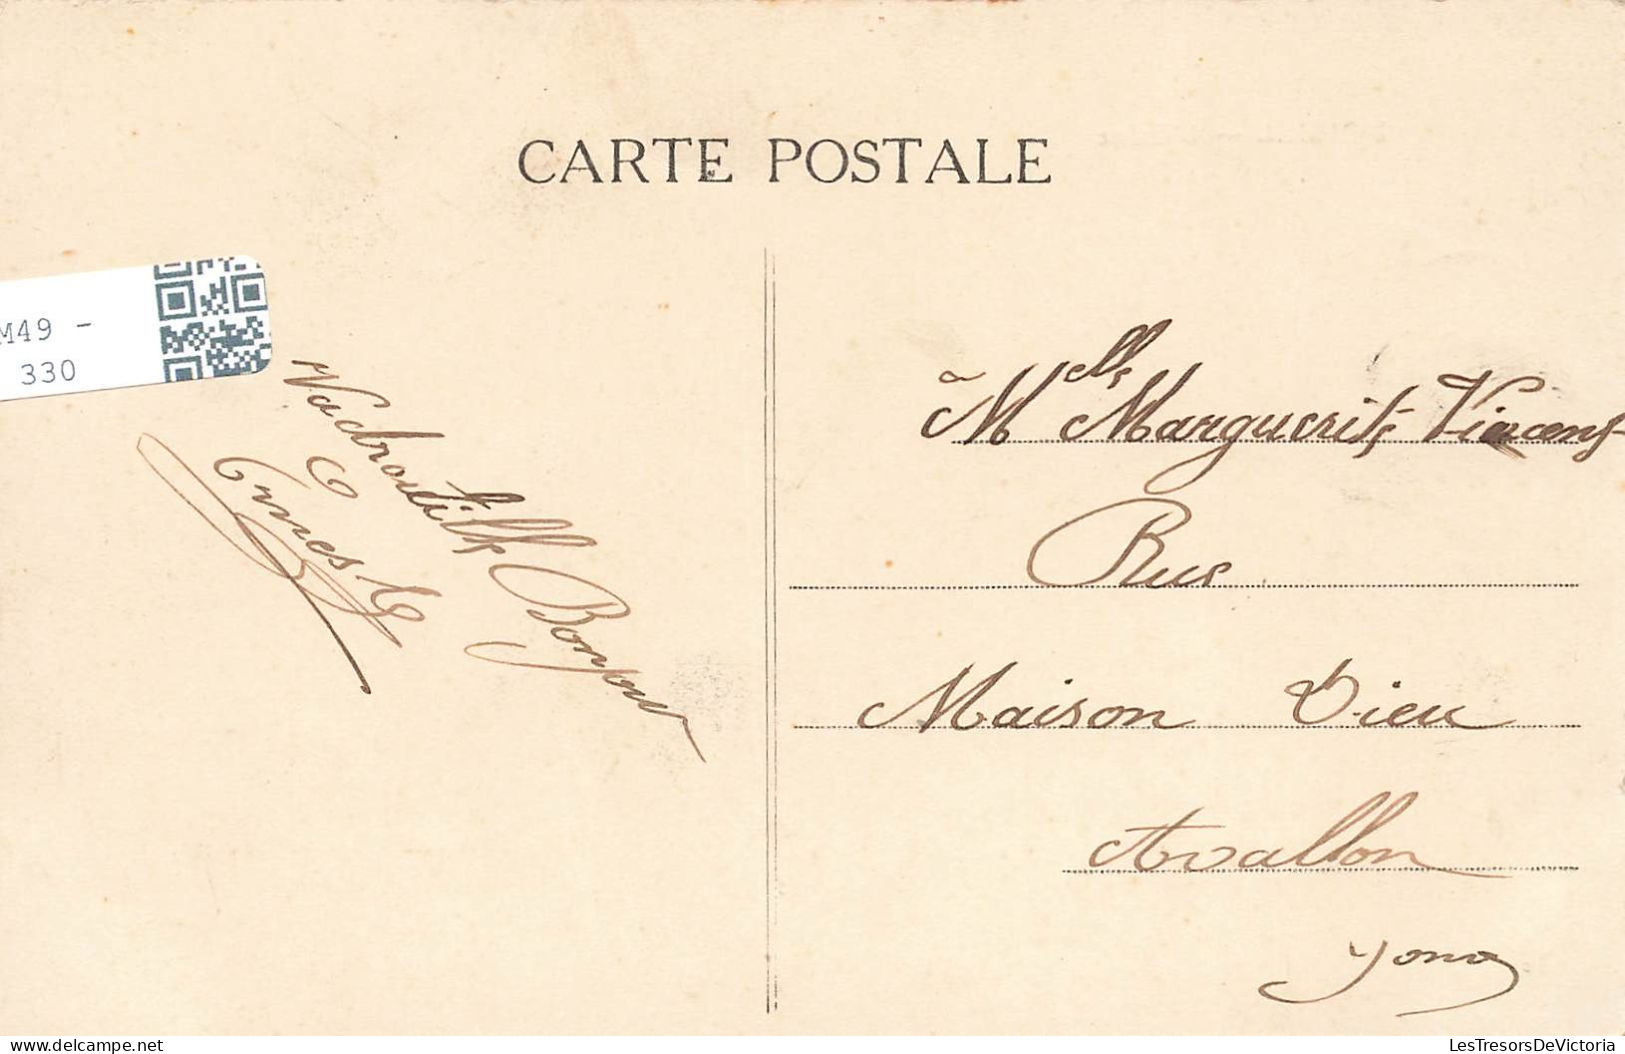 CARTE POSTALE
M49 -
330
à Mlle Marguerite Vincent
Rue
Maison Dieu
Avallon
Yonne
Bonjour
Ernest
LesTresorsDeVictoria
delcampe.net